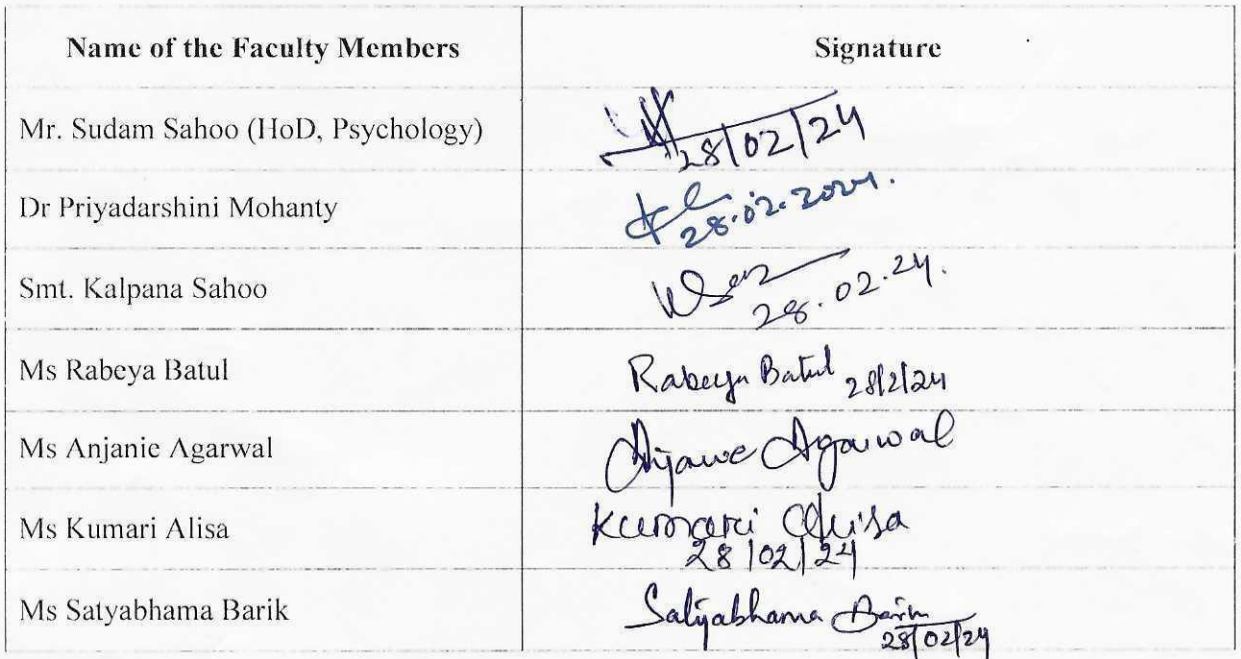 Name of the Faculty Members Signature
Mr. Sudam Sahoo (HoD, Psychology)
28/02/24
Dr Priyadarshini Mohanty
28.02.2024.
Smt. Kalpana Sahoo
28.02.24.
Ms Rabeya Batul Rabeya Batul 28/2/24
Ms Anjanie Agarwal Anjanie Agarwal
Ms Kumari Alisa Kumari Alisa
28/02/24
Ms Satyabhama Barik Satyabhama Barik
28/02/24